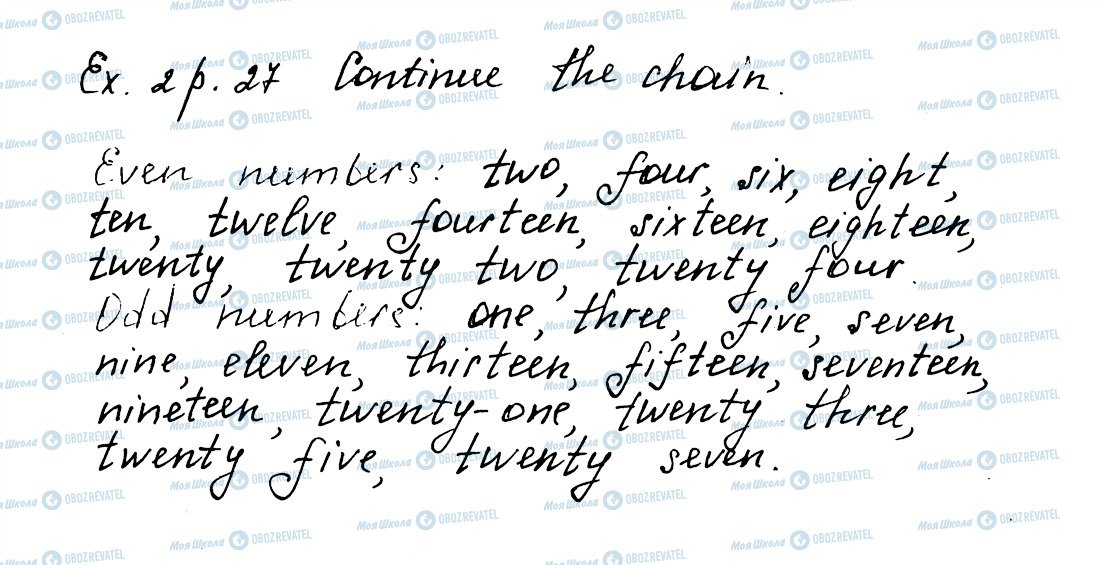 Ex. 2 p. 27 Continue the chain.
Even numbers: two, four, six, eight,
ten, twelve, fourteen, sixteen, eighteen,
twenty, twenty two, twenty four.
Odd numbers: one, three, five, seven,
nine, eleven, thirteen, fifteen, seventeen,
nineteen, twenty-one, twenty three,
twenty five, twenty seven.
Моя Школа OBOZREVATEL